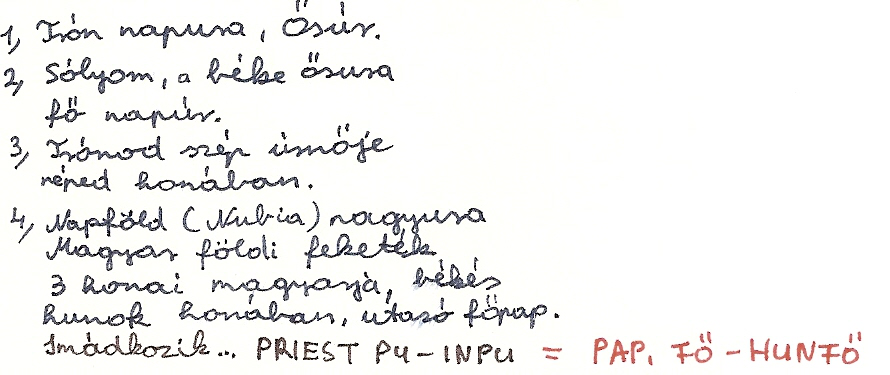 1, Trón napura, Ősúr.
2, Sólyom, a béke ősura
fő napúr.
3, Trónod szép ünnője
néped honában.
4, Napföld (Nubia) nagyura
Magyar földi feketék
3 honai magyarja, békés
hunok honában, utasó főpap.
Imádkozik... PRIEST PU-INPU = PAP, FŐ-HUNFŐ